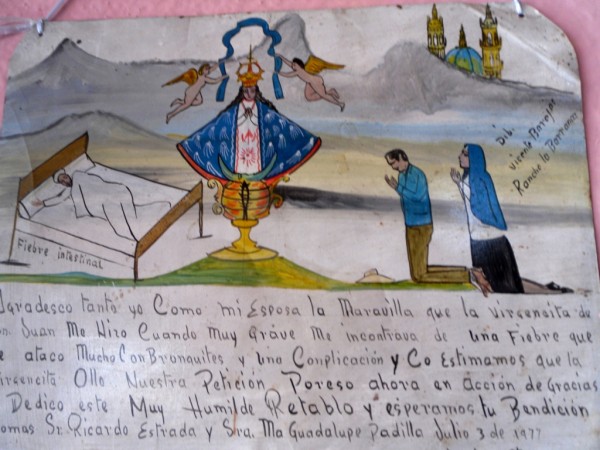 Dib.
Vicente Barajas
Rancho la Barranca
Fiebre intestinal
Agradesco tanto yo Como mi Esposa la Maravilla que la virgencita de
Juan Me Hizo Cuando Muy Gráve Me incontrava de una Fiebre que
ataco Mucho Con Bronquites y Uno Conplicación y Co Estimamos que la
virgencita Ollo Nuestra Petición Poreso ahora en Acción de Gracias
Dedico este Muy Humilde Retablo y esperamos tu Bendición
Sr. Ricardo Estrada y Sra. Ma Guadalupe Padilla Julio 3 de 1977